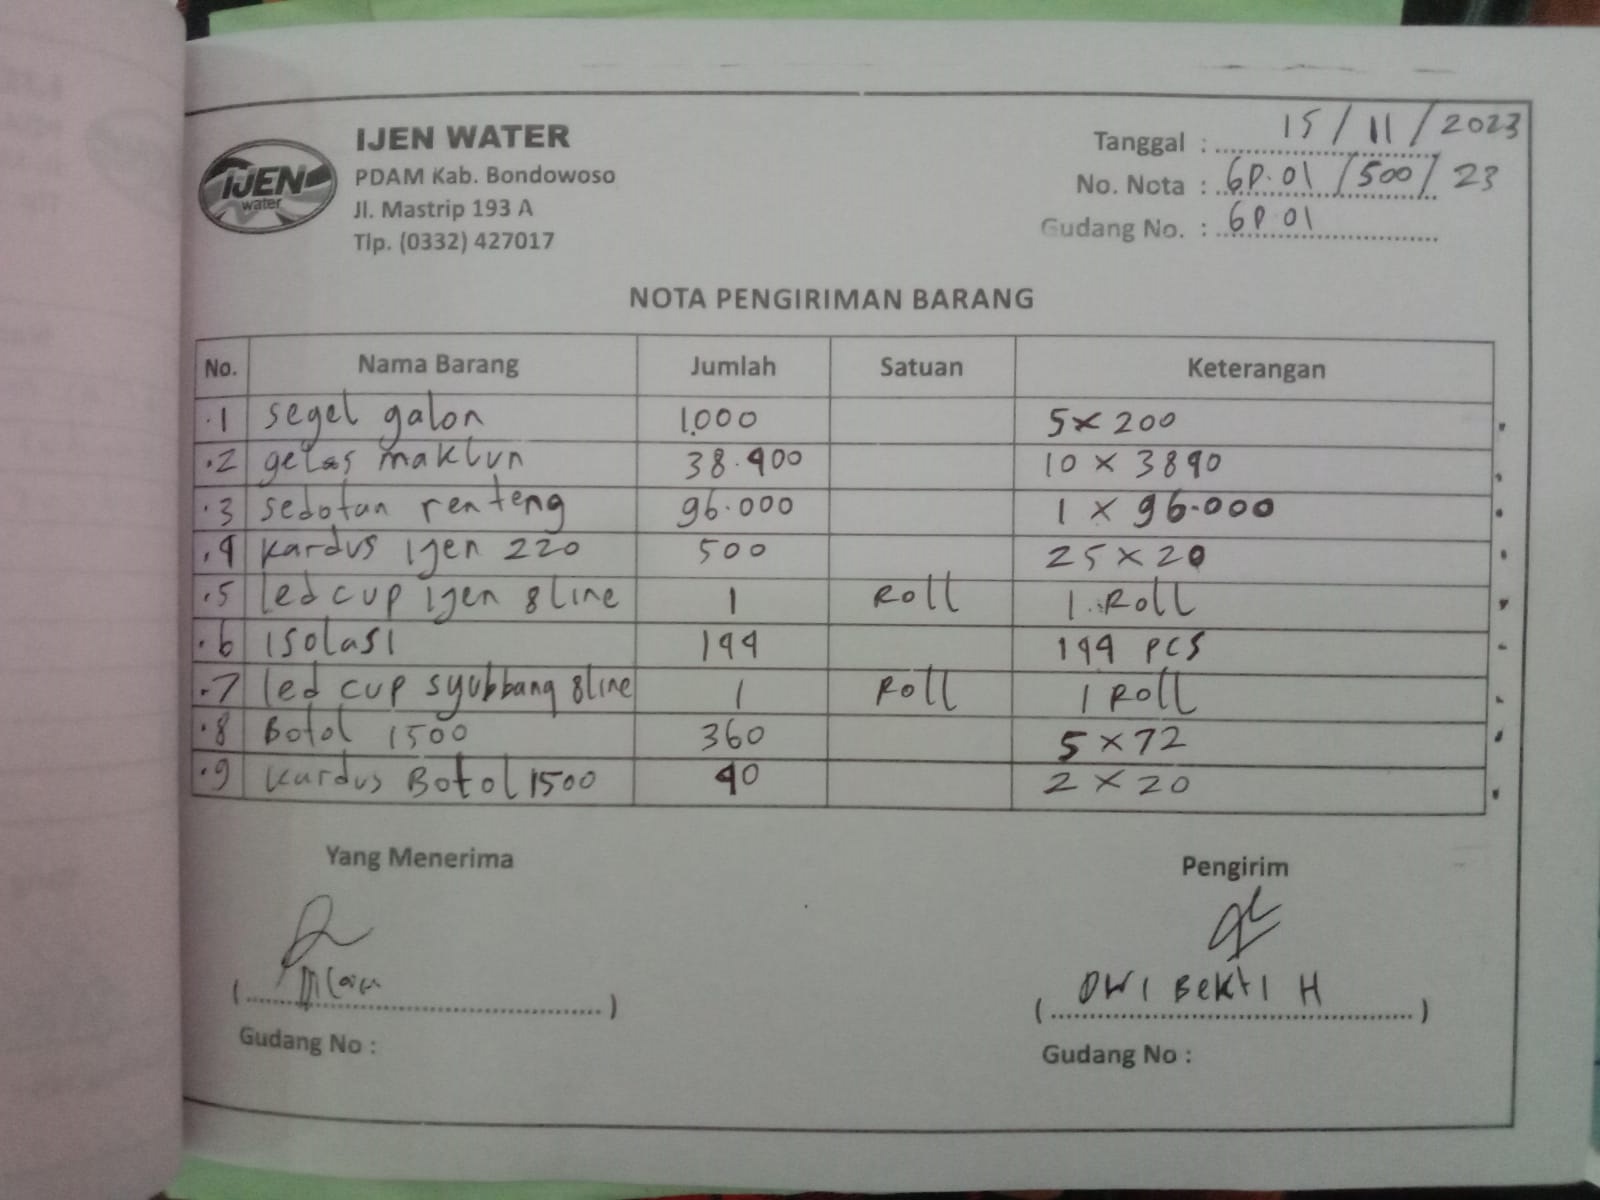 IJEN WATER
PDAM Kab. Bondowoso
Jl. Mastrip 193 A
Tlp. (0332) 427017
IJEN
water
Tanggal : 15 / 11 / 2023
No. Nota : GP.01 / 500 / 23
Gudang No. : GP.01
NOTA PENGIRIMAN BARANG
No. Nama Barang Jumlah Satuan Keterangan
.1 segel galon 1.000 5 x 200
.2 gelas maklun 38.400 10 x 3840
.3 sedotan renteng 96.000 1 x 96.000
.4 kardus ijen 220 500 25 x 20
.5 led cup ijen 8 line 1 Roll 1 Roll
.6 isolasi 144 144 pcs
.7 led cup syubbang 8 line 1 Roll 1 Roll
.8 Botol 1500 360 5 x 72
.9 kardus Botol 1500 40 2 x 20
Yang Menerima Pengirim
( ) ( DWI BEKTI H )
Gudang No : Gudang No :